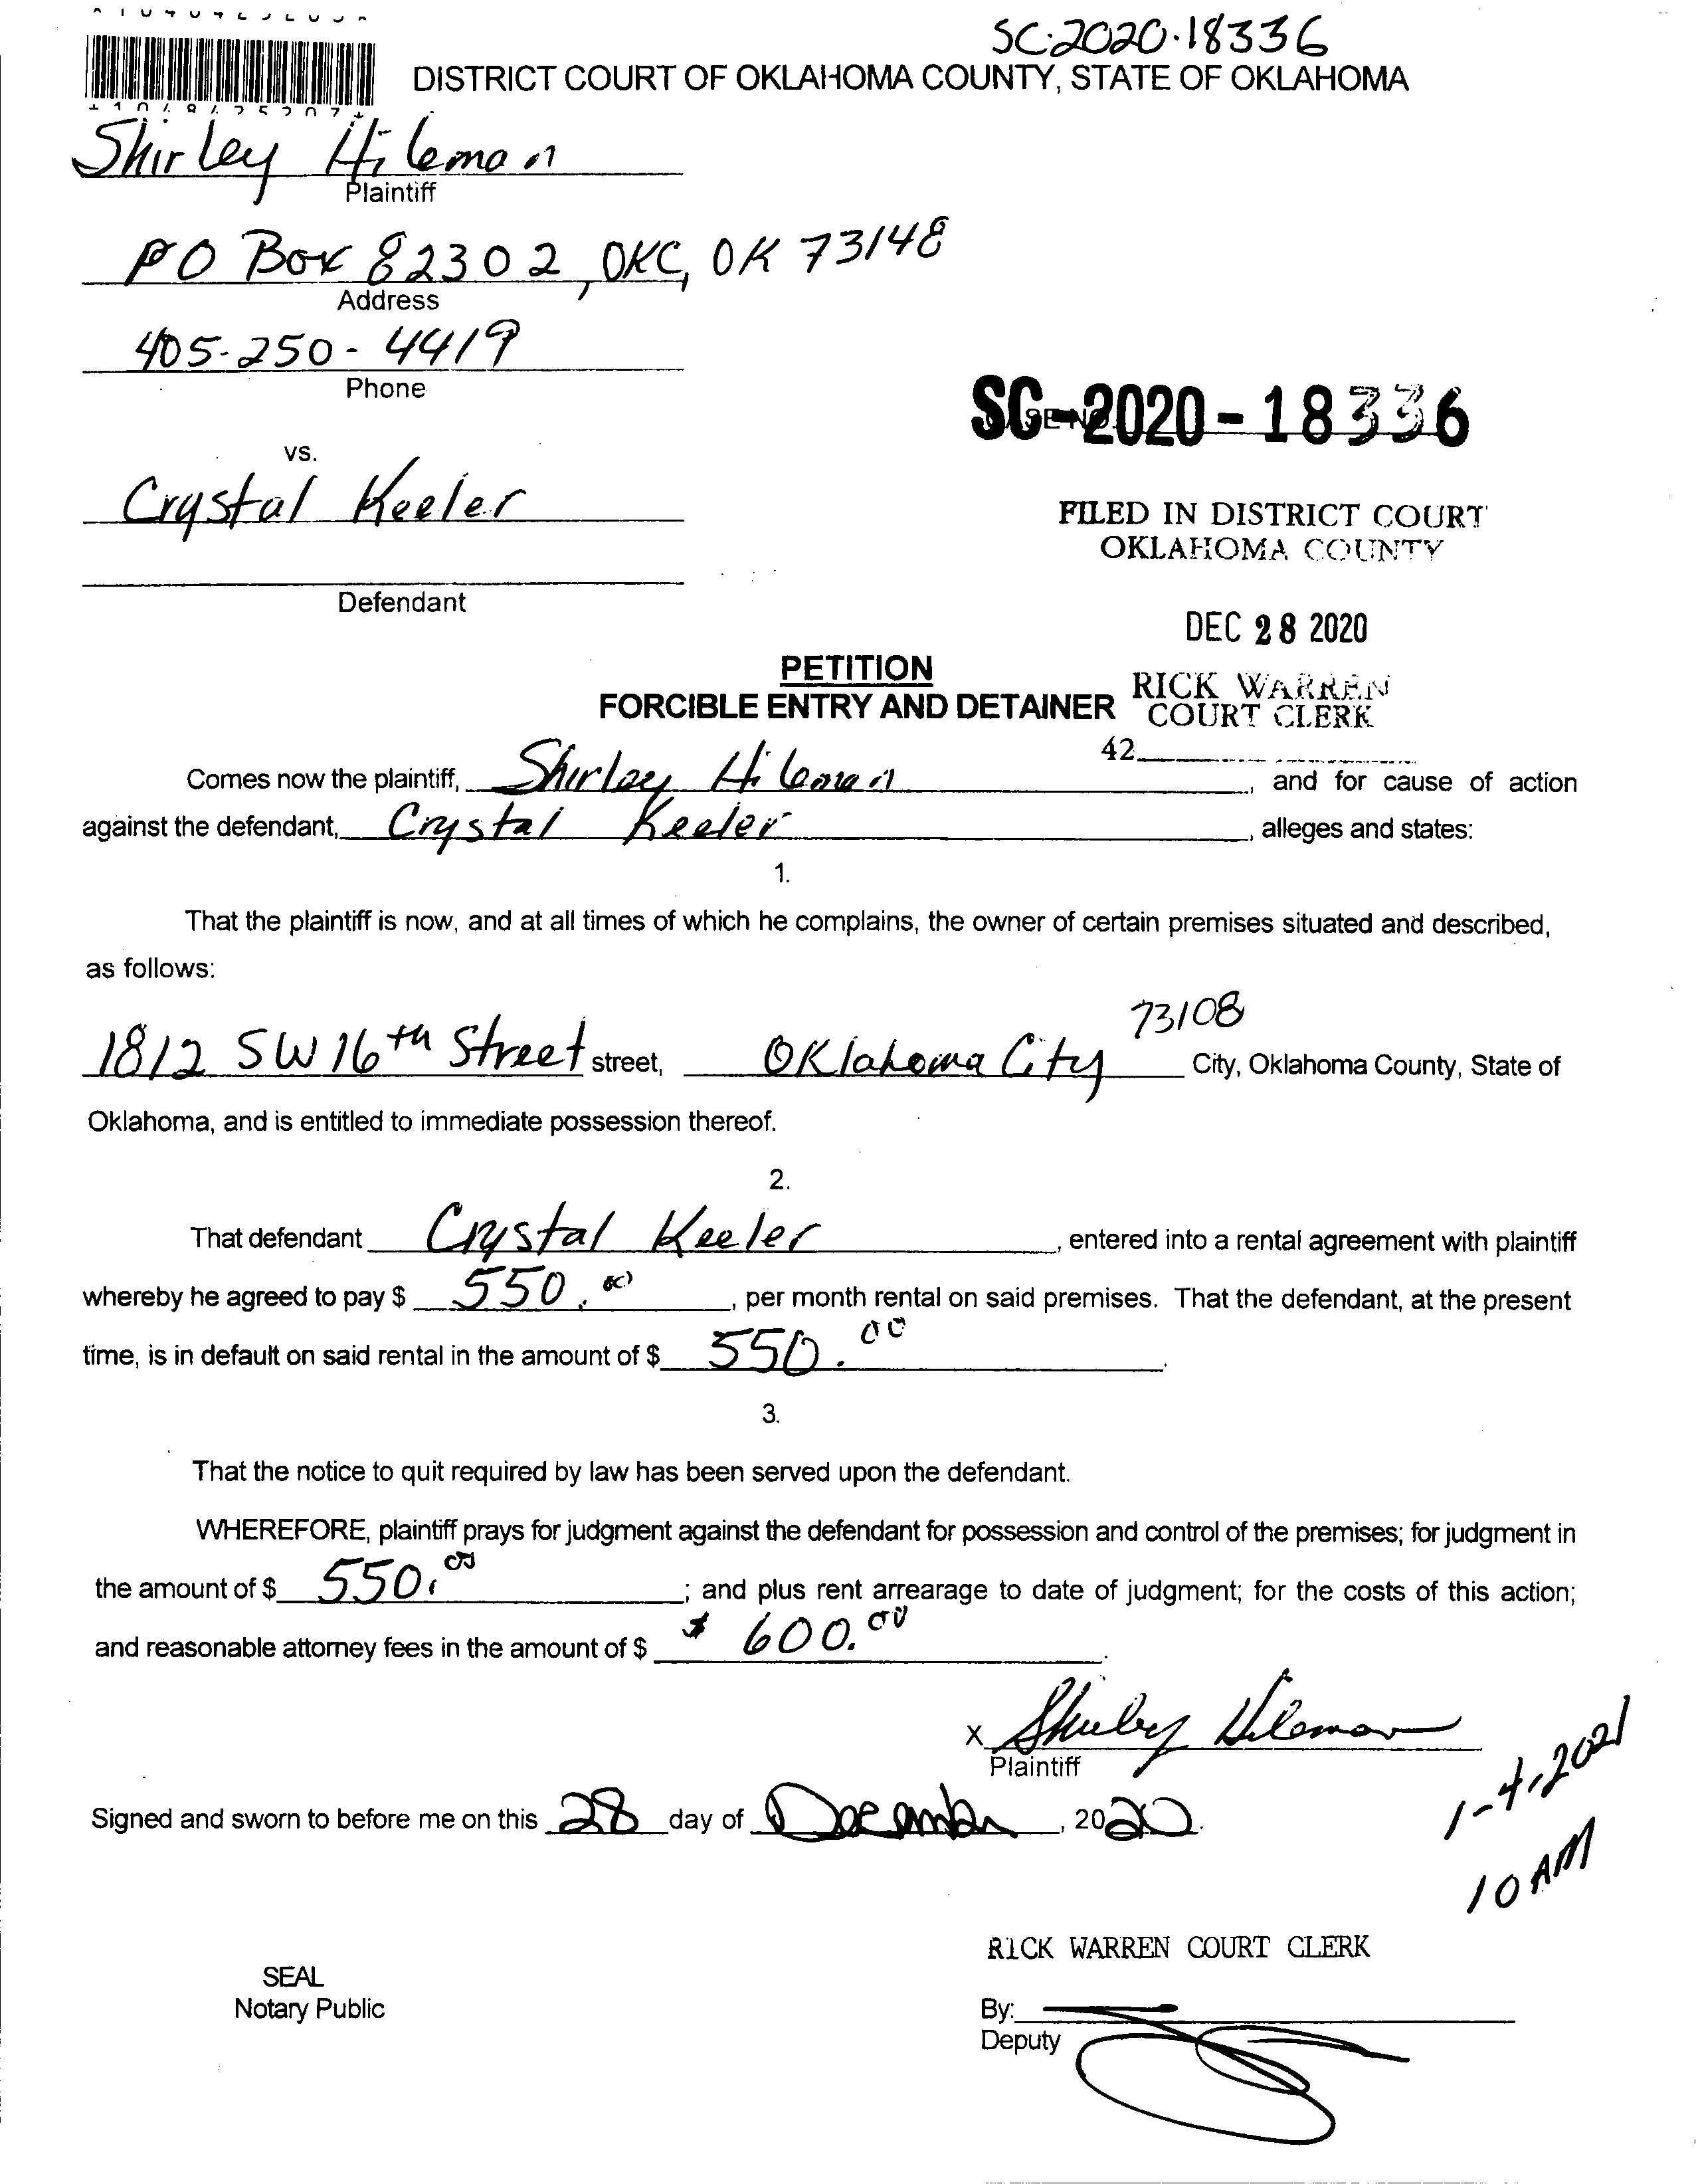 SC-2020-18336
DISTRICT COURT OF OKLAHOMA COUNTY, STATE OF OKLAHOMA
Shirley Hileman
Plaintiff
PO Box 82302, OKC, OK 73148
Address
405-250-4419
Phone
SC-2020-18336
vs.
Crystal Keeler
FILED IN DISTRICT COURT
OKLAHOMA COUNTY
Defendant
DEC 28 2020
PETITION
FORCIBLE ENTRY AND DETAINER
RICK WARREN
COURT CLERK
42
Comes now the plaintiff, Shirley Hileman, and for cause of action
against the defendant, Crystal Keeler, alleges and states:
1.
That the plaintiff is now, and at all times of which he complains, the owner of certain premises situated and described,
as follows:
73108
1812 SW 16th Street street, Oklahoma City City, Oklahoma County, State of
Oklahoma, and is entitled to immediate possession thereof.
2.
That defendant Crystal Keeler, entered into a rental agreement with plaintiff
whereby he agreed to pay $ 550.00, per month rental on said premises. That the defendant, at the present
time, is in default on said rental in the amount of $ 550.00.
3.
That the notice to quit required by law has been served upon the defendant.
WHEREFORE, plaintiff prays for judgment against the defendant for possession and control of the premises; for judgment in
the amount of $ 550.00; and plus rent arrearage to date of judgment; for the costs of this action;
and reasonable attorney fees in the amount of $ $ 600.00.
X Shirley Hileman
Plaintiff
1-4-2021
10 AM
Signed and sworn to before me on this 28 day of December, 2020.
RICK WARREN COURT CLERK
SEAL
Notary Public
By:
Deputy